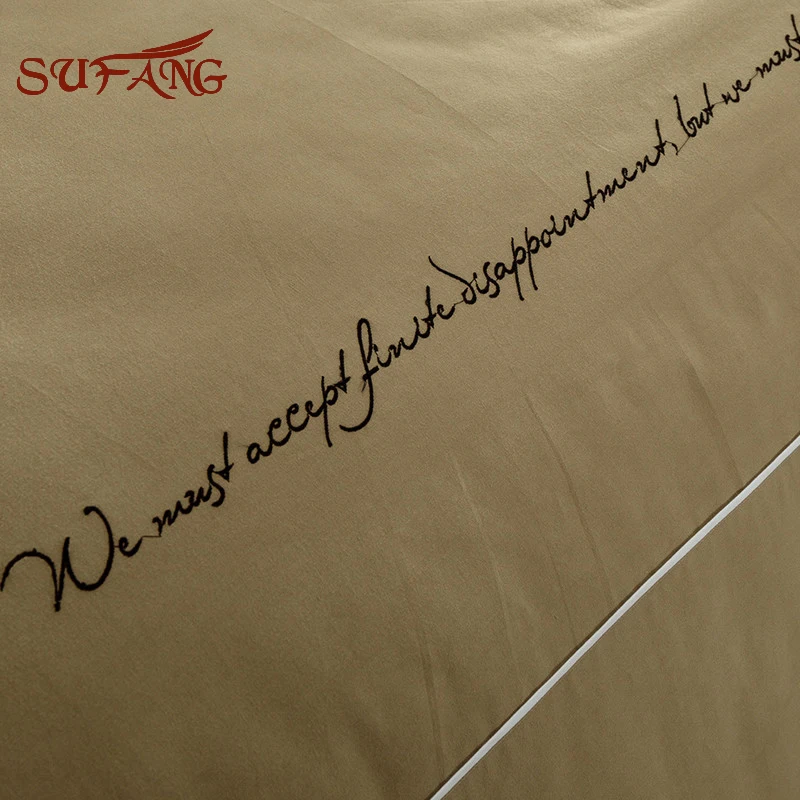 SUFANG
We must accept finite disappointment, but we must